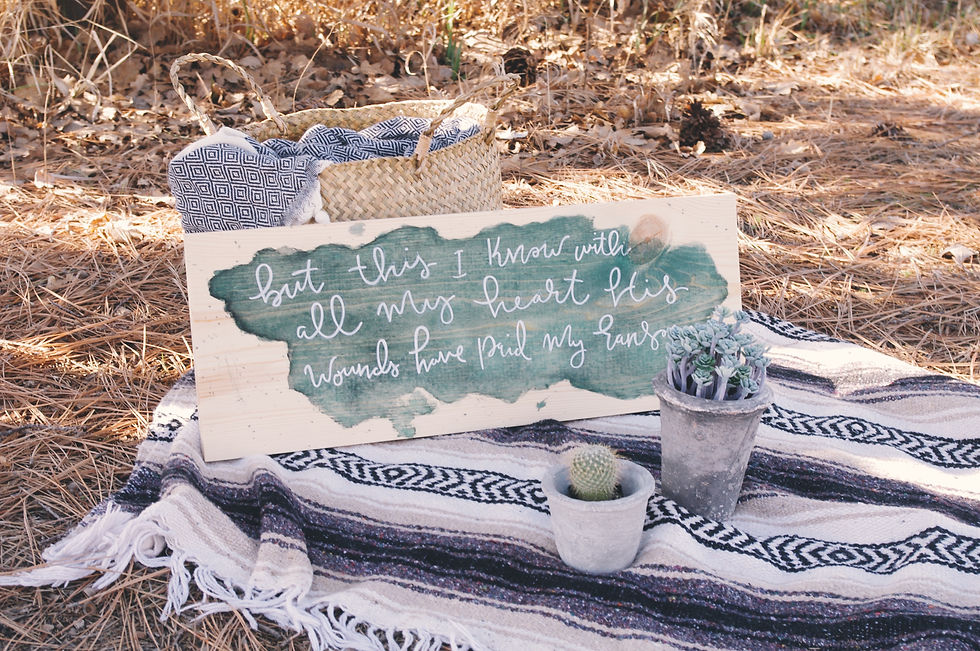 but this I Know with
all My heart His
Wounds have paid My